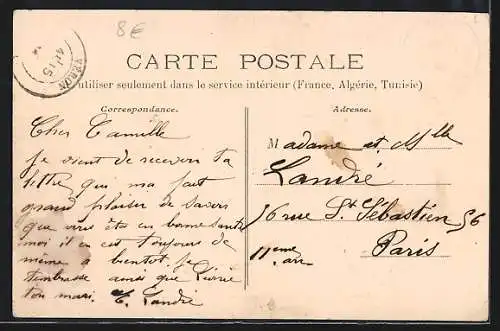 8E
CARTE POSTALE
utiliser seulement dans le service intérieur (France, Algérie, Tunisie)
Correspondance.
Adresse.
Cher Camille
Je vient de recevoir ta
lettre qui ma fait
grand plaisir de savoir
que vous êtes en bonne santé
moi il en est toujours de
même a bientot. Je
t'embrasse ainsi que
ton mari. C. Landré
Madame et Mlle
Landré
56
rue St Sébastien
Paris
11eme arr